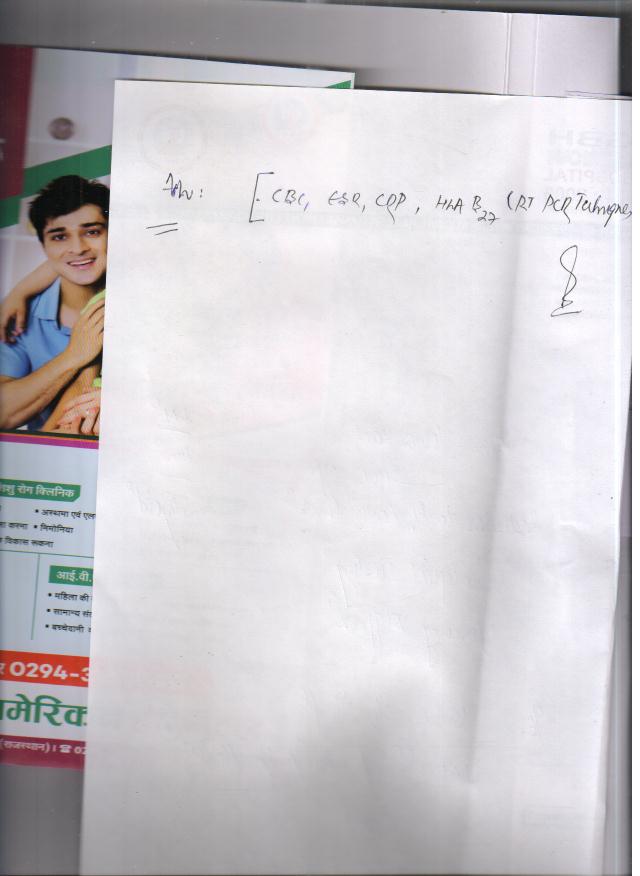 Adv: [ CBC, ESR, CRP, HLA B27 (RT PCR Technique
शिशु रोग क्लिनिक
• अस्थमा एवं एल
ा करना • निमोनिया
विकास रूकना
आई.वी.
• महिला की
• सामान्य सं
• बच्चेदानी
र 0294-3
मेरिक
(राजस्थान)। ☎ 02